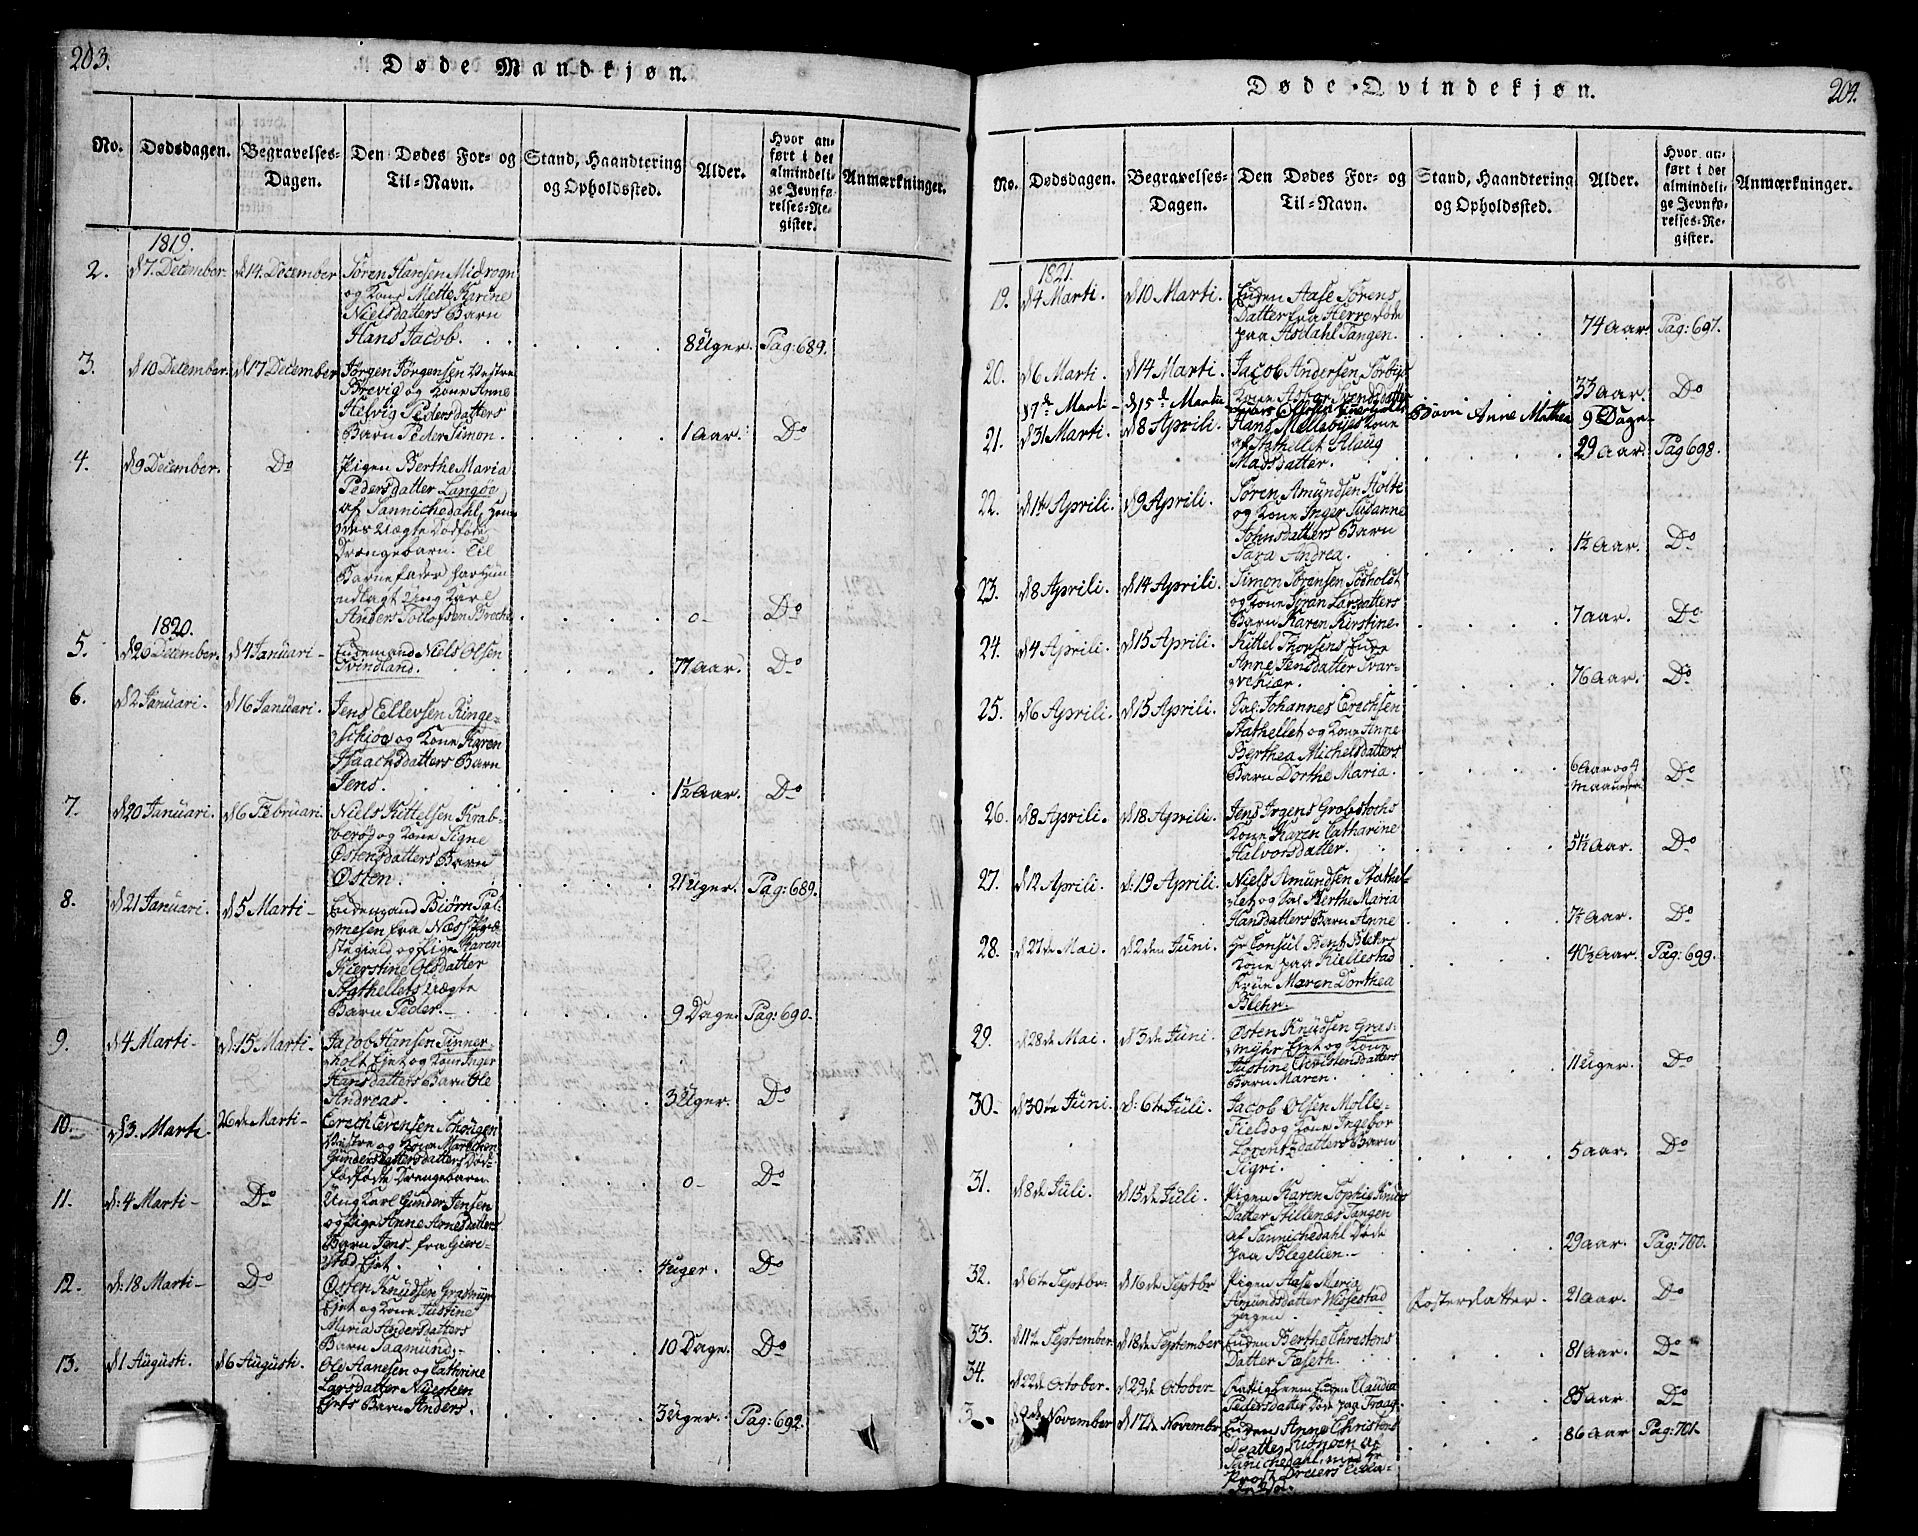 203.
Døde Mandkjøn.
No.
Dødsdagen.
Begravelses-
Dagen.
Den Dødes For- og
Til-Navn.
Stand, Haandtering
og Opholdssted.
Alder.
Hvor an-
ført i det
almindeli-
ge Jevnfø-
relses-Re-
gister.
Anmærkninger.
1819.
2. d 7 December. d 14. December Søren Hansen Midrogn
og Kone Mette Karine
Nielsdatters Barn
Hans Jacob. 8 Uger. Pag: 689.
3. d 10 December. d 17 December Jørgen Jørgensen Vestre
Brevig og Kone Anne
Helvig Pedersdatters
Barn Peder Simon. 1 Aar. Do
4. d 9 December. Do Pigen Berthe Maria
Pedersdatter Langøe
af Sannichedahl, hen-
des Uægte Dødfødte
Drængebarn. Til
Barnefader har hun
udlagt Ung Karl
Anders Tollofsen 0- Do
1820.
5. d 26 December. d 4 Januari- Enkemand Niels Olsen
Qvindland. 77 Aar. Do
6. d 2 Januari. d 16 Januari. Jens Ellevsen Ringe-
schioe og Kone Karen
Isaachsdatters Barn
Jens. 1½ Aar. Do
7. d 20 Januari. d 6 Februari. Niels Kittelsen Krab-
berød og Kone Signe
Østensdatters Barn
Østen. 21 Uger. Pag: 689.
8. d 21 Januari. d 5 Marti- Enkemand Biørn Pal-
mesen fra Næss
og Pige Karen
Kierstine Olsdatter
Stathellets Uægte
Barn Peder. 9 Dage. Pag: 690.
9. d 4 Marti- d: 15 Marti. Jacob Hansen Tinner-
holt Eiet og Kone Inger
Hansdatters Barn Ole
Andreas. 3 Uger. Do
10. d 3. Marti- 26 de Marti- Erech Evensen Schougen
Vestre og Kone Marichen
Gundersdatters Død-
fødte Drengebarn. 0- Do
11. d: 4 Marti- Do Ung Karl Gunder Jensen
og Pige Anne Arnesdatters
Barn Jens- fra Giere-
stad Eiet. 4 Uger. Do
12. d: 18 Marti- Do Østen Knudsen Grasmyr
Eiet og Kone Justine
Maria Andersdatters
Barn Saamund. 10 Dage. Do
13. d 1 Augusti. d 6 Augusti. Ole Aanesen og Catherine
Larsdatter
Eiets Barn Anders. 3 Uger. Pag: 692.
204.
Døde Qvindekjøn.
No.
Dødsdagen.
Begravelses-
Dagen.
Den Dødes For- og
Til-Navn.
Stand, Haandtering
og Opholdssted.
Alder.
Hvor an-
ført i det
almindeli-
ge Jevnfø-
relses-Re-
gister.
Anmærkninger.
1821.
19. d 4 Marti. d 10 Marti. Enken Aase Sørens
Datter fra Herre døde
paa Asdahl Tangen. 74 Aar Pag: 697.
20. d 6 Marti. d 14 Marti. Jacob Andersen Sørbøes
Kone Asbør Svendsdatter 33 Aar. Do
17 de Marti- d 15 de Martii Barn Anne Mathea 9 Dage
21. d 31 Marti. d 8 Aprili. Hans Mellebyes Kone
af Stathellet Aslaug
Madsdatter. 29 Aar. Pag 698.
22. d 1te Aprili. d 9 Aprili. Søren Amundsen Holte
og Kone Inger Susanne
Johnsdatters Barn
Sara Andrea. 1½ Aar. Do
23. d 8 Aprili. d 14 Aprili. Simon Sørensen Sødholdt
og Kone Søran Larsdatters
Barn Karen Kirstine. 7 Aar. Do
24. d 4 Aprili. d 15 Aprili. Kittel Thorsens Enke
Anne Jensdatter Svar-
vekiær. 76 Aar. Do
25. d 6 Aprili. d 15 Aprili. Sal: Johannes Erechsen
Stathellet og Kone Anne
Berthea Michelsdatters
Barn Dorthe Maria. 6 Aar og 4
Maaneder. Do
26. d 8 Aprili. d 18 Aprili. Jens Irgens Grobstochs
Kone Karen Catharine
Halvorsdatter. 51½ Aar. Do
27. d 12 Aprili. d: 19 Aprili. Niels Amundsen Stathel-
let og Sal Berthe Maria
Hansdatters Barn Anne 7½ Aar. Do
28. d 27 de Mai. d 2 den Juni. Hr Consul Bent Blehrs
Kone paa Kiellestad
Frue Maren Dorthea
Blehr. 40½ Aar. Pag: 699.
29. d 28 de Mai. d 3 de Juni. Østen Knudsen Gras-
myhr Eiet og Kone
Justine Christensdatters
Barn Maren. 11 Uger. Do
30- d 30te Juni. d: 6te Juli. Jacob Olsen Molle-
Field og Kone Ingebor
Lorensdatters Barn
Sigri. 5 Aar. Do
31. d 8 de Juli. d 15 de Juli. Pigen Karen Sophie Knuds
Datter Stillenæs Tangen
af Sannichedahl Døde
paa Blegelien. 29 Aar. Pag: 700.
32. d 6te Septbr. d 16 de Septbr Pigen Aase Maria
Amundsdatter Wissestad
Hagen. Fosterdatter. 21 Aar. Do
33. d 11te September. d 18 de September Enken Berthe Chrestens
Datter Fæseth. 81 Aar. Do
34. d 22 de October. d 29 de October- Fattiglem Enken Claudia
Pedersdatter Døde paa Traag. 85 Aar Do
3 d 9 de November d 17 de November Enken Anne Christens
Datter af
Sanichedahl, 86 Aar Pag: 701.